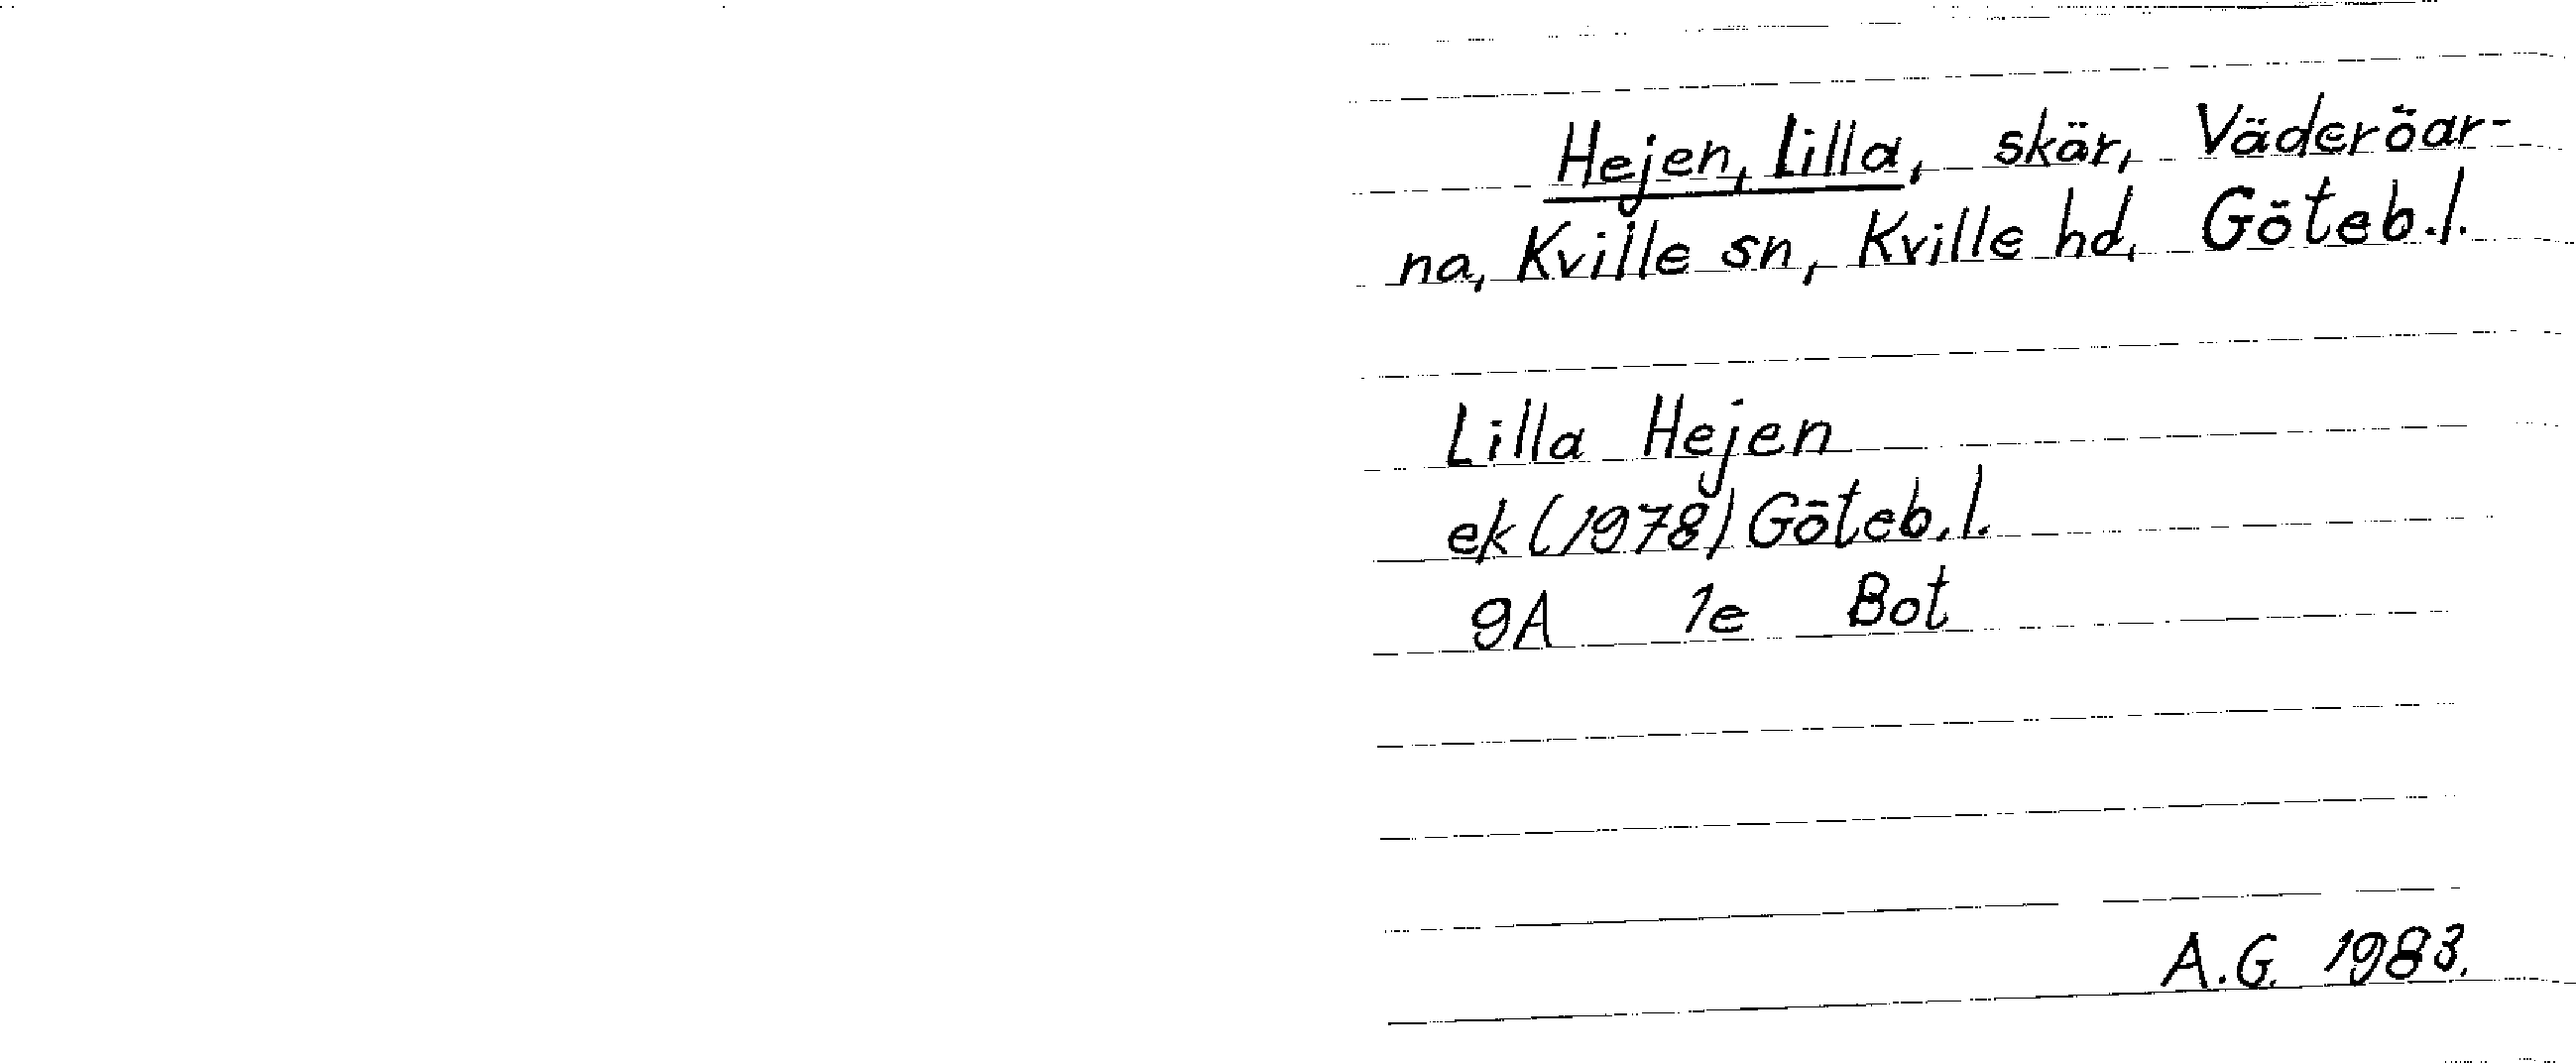 Hejen, Lilla, skär, Väderöar-
na, Kville sn, Kville hd, Göteb.l.
Lilla Hejen
ek (1978) Göteb.l.
9A 1e Bot
A.G. 1983.